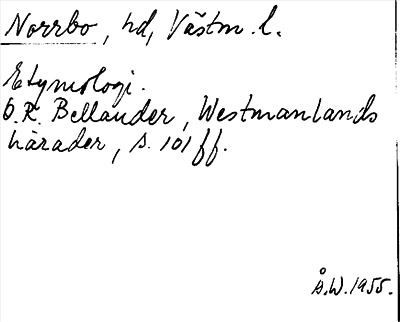 Norrbo, hd, Västm. l.
Etymologi.
O.R. Bellander, Westmanlands
härader, s. 101 ff.
Å.W. 1955.